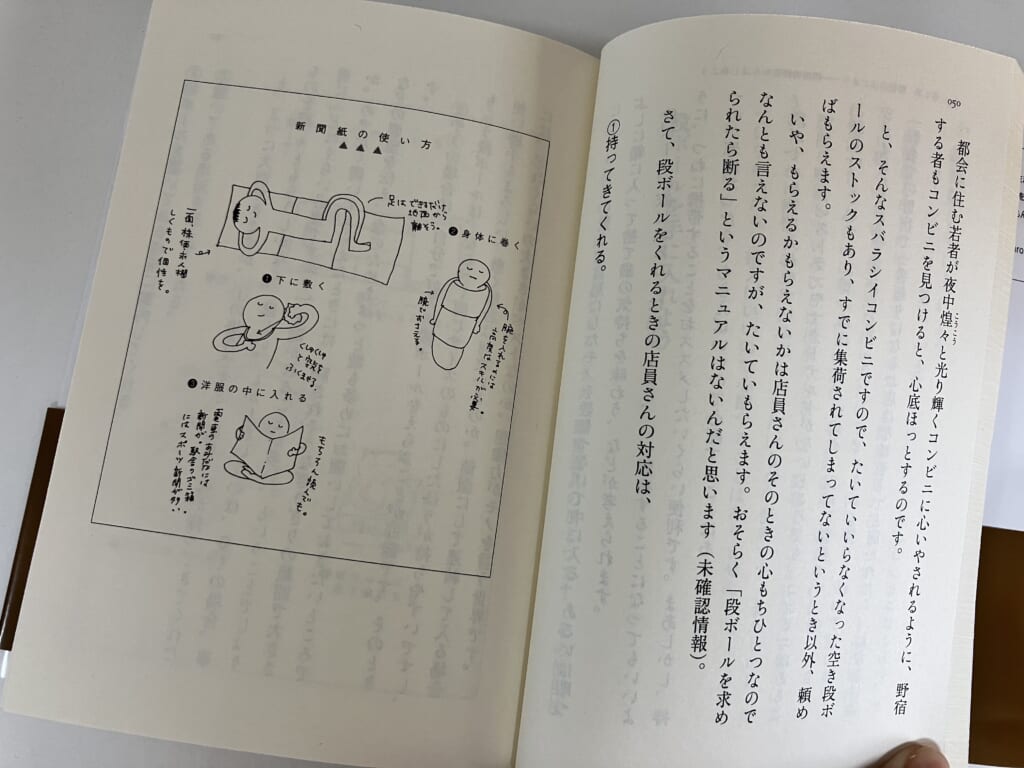 050
都会に住む若者が夜中煌々と光り輝くコンビニに心いやされるように、野宿
こうこう
する者もコンビニを見つけると、心底ほっとするのです。
と、そんなスバラシイコンビニですので、たいていいらなくなった空き段ボ
ールのストックもあり、すでに集荷されてしまってないというとき以外、頼め
ばもらえます。
いや、もらえるかもらえないかは店員さんのそのときの心もちひとつなので
なんとも言えないのですが、たいていもらえます。おそらく「段ボールを求め
られたら断る」というマニュアルはないんだと思います（未確認情報）。
さて、段ボールをくれるときの店員さんの対応は、
①持ってきてくれる。
新聞紙の使い方
▲▲▲
足はできるだけ
地面から
離そう。
一面、株価、求人欄
しくもので個性を。
❶下に敷く
❷身体に巻く
腕を入れるには
高度なスキルが必要。
腕でおさえる。
くしゅくしゅ
と空気を
ふくませる。
❸洋服の中に入れる
もちろん読んでも。
電車のあみだなには
新聞が、駅のゴミ箱
にはスポーツ新聞が多い。